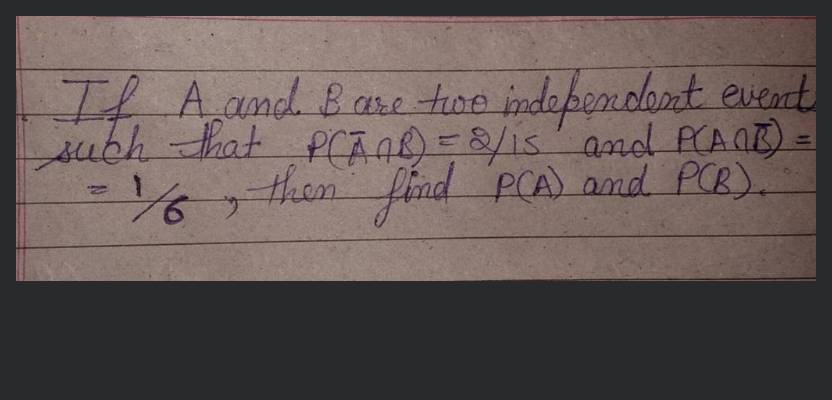 If A and B are two independent event
such that P(Ā∩B) = 2/15 and P(A∩B̄) =
= 1/6, then find P(A) and P(B).